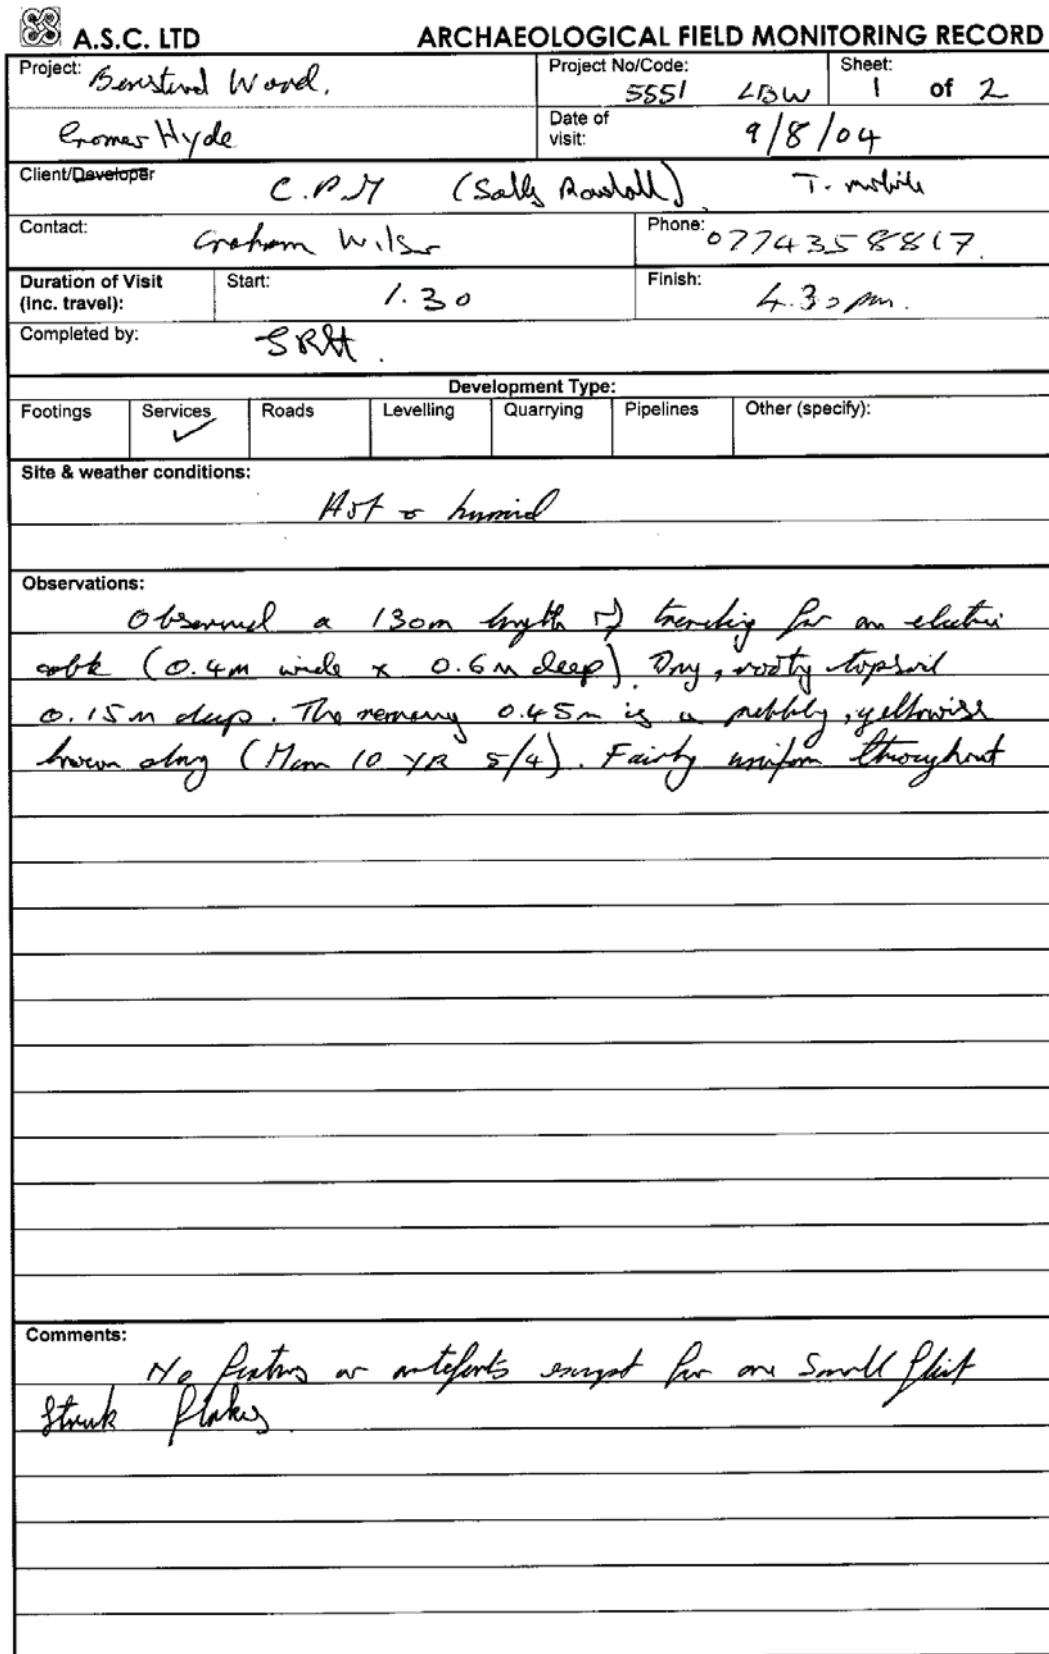 A.S.C. LTD ARCHAEOLOGICAL FIELD MONITORING RECORD
Project: Wood. Project No/Code: 5551 LBW Sheet: 1 of 2
Cromer Hyde Date of visit: 9/8/04
Client/Developer C.P.M (Sally Randall) T-mobile
Contact: Graham Wilson Phone: 07743558817
Duration of Visit (inc. travel): Start: 1.30 Finish: 4.30 pm.
Completed by: SRH.
Development Type:
Footings Services ✓ Roads Levelling Quarrying Pipelines Other (specify):
Site & weather conditions:
Hot & humid
Observations:
Observed a 130m length of trenching for an electric
cable (0.4m wide x 0.6m deep). Dry, rooty topsoil
0.15m deep. The remaining 0.45m is a pebbly, yellowish
brown clay (Mun 10 YR 5/4). Fairly uniform throughout
Comments:
No features or artefacts except for one small flint
struck